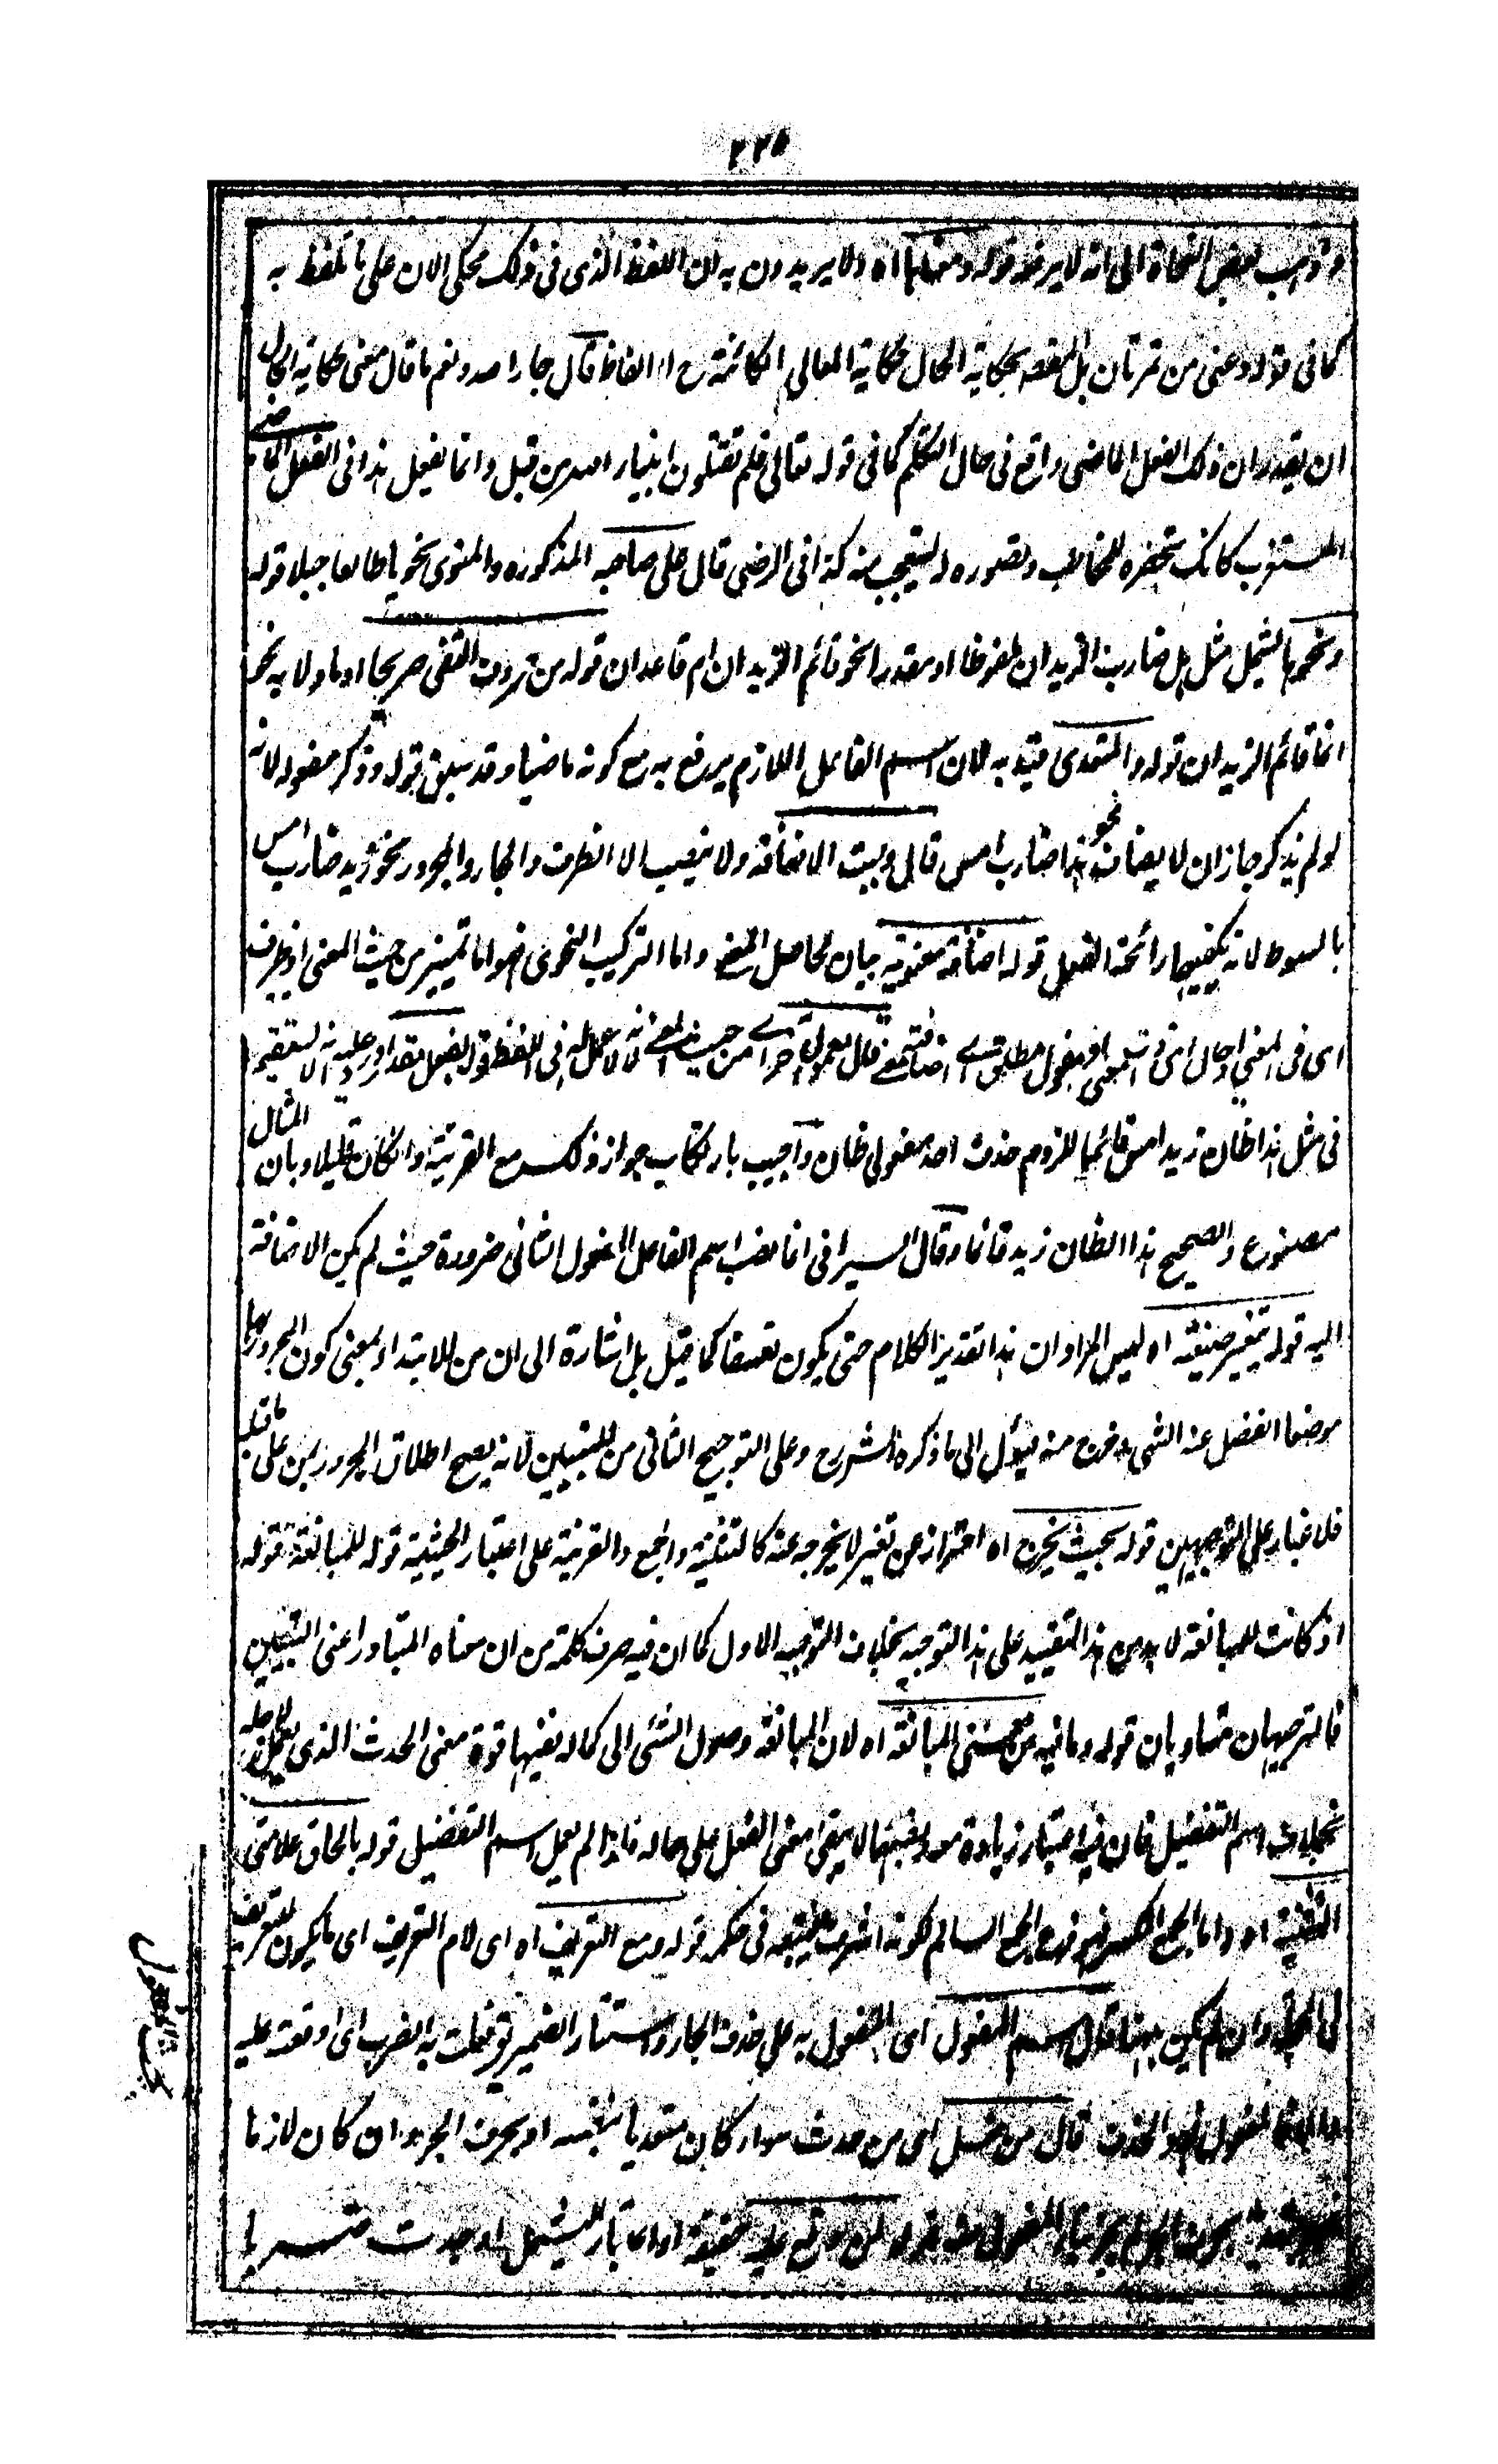 ٢٢٥
وذهب بعض النحاة الى انه لا يرفعه قوله ومعناها اه ولا يريدون به ان اللفظ الذى فى ذلك محكى الان على ما تلفظ به
كما فى قوله دعنى من تمرتان بل المقصود بحكاية الحال حكاية المعانى الكائنة ح لا الفاظ قال جار الله ونعم ما قال معنى حكاية الحال
ان يقدر ان ذلك الفعل الماضى واقع فى حال التكلم كما فى قوله تعالى فلم تقتلون انبياء الله من قبل وانما يفعل هذا فى الفعل الماضى
المستغرب كانك تحضره للمخاطب وتصوره له ليتعجب منه كذا فى الرضى قال على صاحبه المذكورة والمنوى نحو يا طالعا جبلا قوله
ونحوها ليشمل مثل هل ضارب الزيدان ملفوظا او مقدرا نحو قائم الزيدان ام قاعدان قوله من حروف النفى صريحا او ما ولا به نحو
انما قائم الزيدان قوله والمتعدى قيد به لان اسم الفاعل اللازم يرفع به مع كونه ماضيا وقد سبق قوله وذكر مفعوله لانه
لو لم يذكر جاز ان لا يضاف نحو هذا ضارب امس قال وجبت الاضافة ولا ينصب الا الظرف والجار والمجرور نحو زيد ضارب امس
بالسوط لانه يكفيهما رائحة الفعل قوله اضافة معنوية بيان لحاصل المعنى واما التركيب النحوى فهو اما تمييز من حيث المعنى او ظرف
اى فى المعنى او حال اى ذات المعنى او مفعول مطلق اى اضافة معنى قال معمول آخر اى من حيث المعنى لانه لا عمل له فى اللفظ قوله بفعل مقدر اورد عليه انه لا يستقيم
فى مثل هذا ظان زيد امس قائما للزوم حذف احد مفعولى ظان واجيب بارتكاب جواز ذلك مع القرينة وان كان قليلا وبان المثال
مصنوع والصحيح هذا الظان زيد قائما وقال السيرافى انما نصب اسم الفاعل المفعول الثانى ضرورة حيث لم يكن الاضافة
اليه قوله بتغيير صيغته اه ليس المراد ان هذا تقدير الكلام حتى يكون تعسفا كما قيل بل اشارة الى ان من للابتداء بمعنى كون المجرور بها
موضعا انفصل عنه الشئ وخرج منه فيؤل الى ما ذكره الشارح وعلى التوجيح الثانى من للتبيين لانه يصح اطلاق المجرور بمن على ما قبله
فلا غبار على التوجيهين قوله بحيث يخرج اه احتراز عن تغير لا يخرجه عنه كالتثنية والجمع والقرينة على اعتبار الحيثية قوله للمبالغة قوله
اذ كانت للمبالغة لا بد من هذا التقييد على هذا التوجيه بخلاف التوجيه الاول كما ان فيه صرف كلمة من ان معناه المتبادر اعنى التبيين
فالتوجيهان متساويان قوله وما فيه من معنى المبالغة اه لان المبالغة وصول الشئ الى كماله ففيها قوة معنى الحدث الذى يعمل لاجله
بخلاف اسم التفضيل فان فيه اعتبار زيادة معه لا يبقى معنى الفعل على حاله فلهذا لم يعمل اسم التفضيل قوله بالحاق علامتى
التثنية اه واما الجمع المكسر فهو فرع الجمع السالم لكونه اشرف فيتبعه فى حكمه قوله ومع التعريف اه اى لام التعريف اى ما يكون للتعريف
فى الجملة وان لم يكن ههنا قال اسم المفعول اى المفعول به على حذف الجار واستتار الضمير فى فعلت به الضرب اى اوقعته عليه
قال من فعل اى من حدث سواء كان متعديا بنفسه او بحرف الجر وان كان لازما
المفعول حقيقة او اعتبارا ليشمل اوجدت ضربا